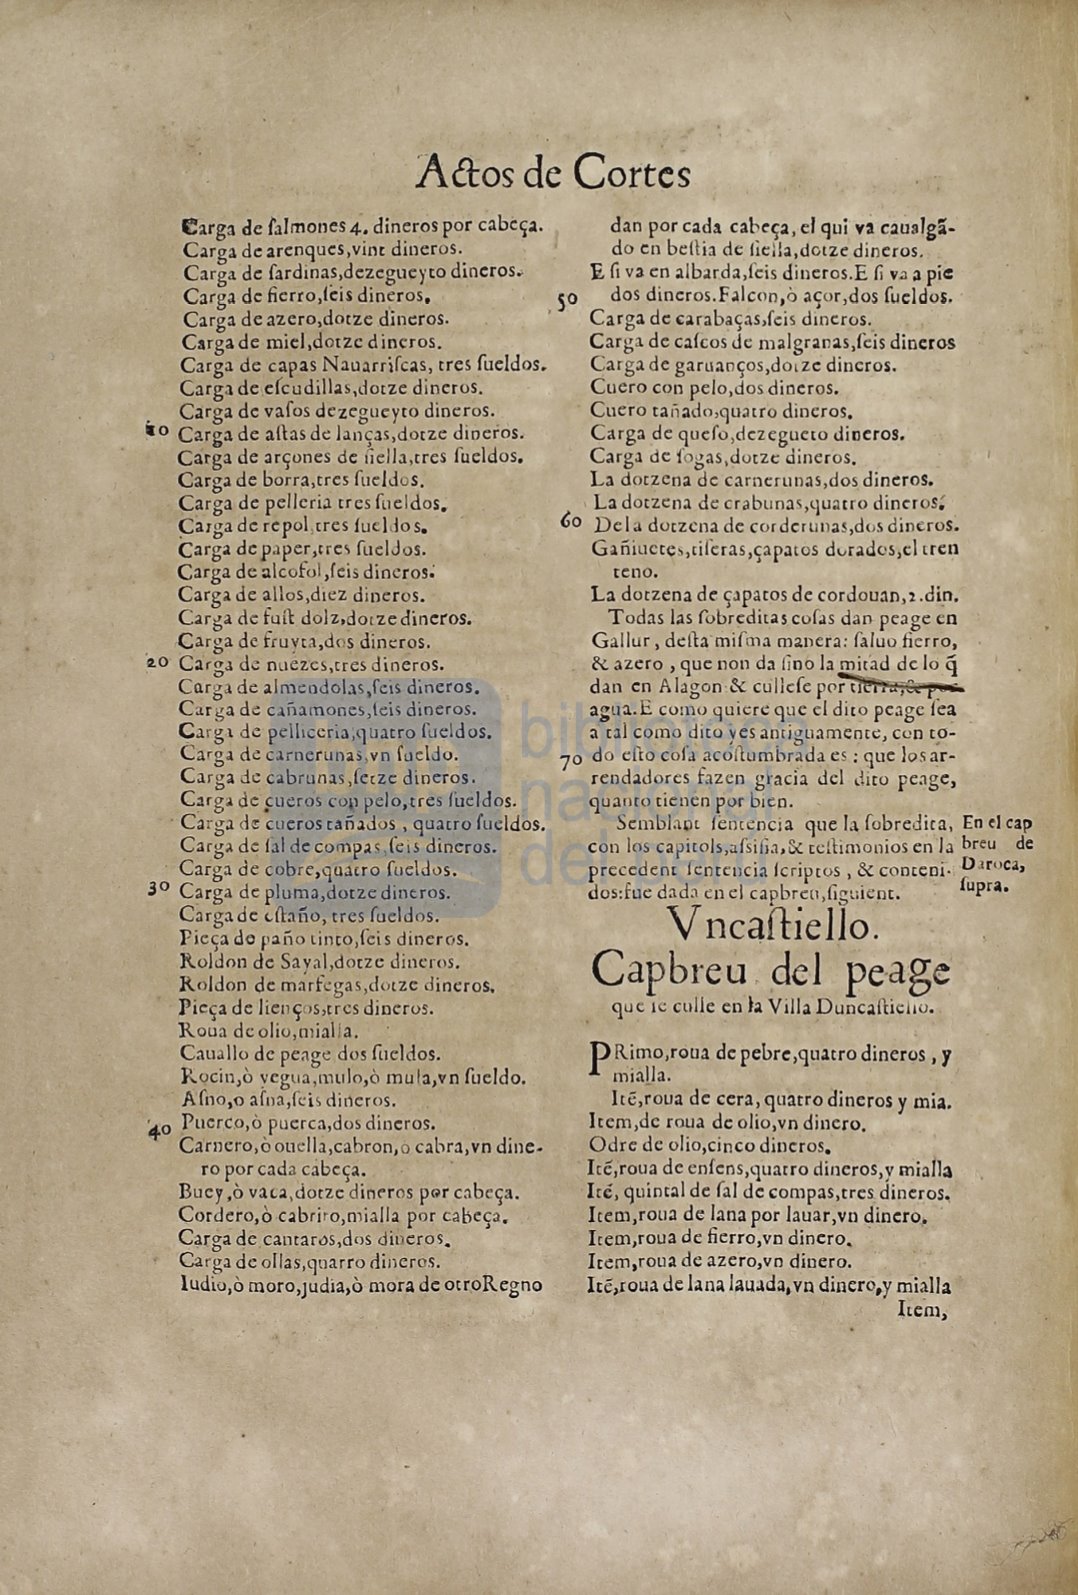 Actos de Cortes
Carga de ſalmones 4. dineros por cabeça.
Carga de arenques,vint dineros.
Carga de ſardinas,dezegueyto dineros.
Carga de fierro,ſeis dineros.
Carga de azero,dotze dineros.
Carga de miel,dotze dineros.
Carga de capas Nauarriſcas, tres ſueldos.
Carga de eſcudillas,dotze dineros.
Carga de vaſos dezegueyto dineros.
10 Carga de aſtas de lanças,dotze dineros.
Carga de arçones de ſiella,tres ſueldos.
Carga de borra,tres ſueldos.
Carga de pelleria tres ſueldos.
Carga de repol tres ſueldos.
Carga de paper,tres ſueldos.
Carga de alcofol,ſeis dineros.
Carga de allos,diez dineros.
Carga de fuſt dolz,dotze dineros.
Carga de fruyta,dos dineros.
20 Carga de nuezes,tres dineros.
Carga de almendolas,ſeis dineros.
Carga de cañamones,ſeis dineros.
Carga de pelliceria,quatro ſueldos.
Carga de carnerunas,vn ſueldo.
Carga de cabrunas,ſetze dineros.
Carga de cueros con pelo,tres ſueldos.
Carga de cueros tañados , quatro ſueldos.
Carga de ſal de compas,ſeis dineros.
Carga de cobre,quatro ſueldos.
30 Carga de pluma,dotze dineros.
Carga de eſtaño, tres ſueldos.
Pieça de paño tinto,ſeis dineros.
Roldon de Sayal,dotze dineros.
Roldon de marfegas,dotze dineros.
Pieça de lienços,tres dineros.
Roua de olio,mialla.
Cauallo de peage dos ſueldos.
Rocin,ò yegua,mulo,ò mula,vn ſueldo.
Aſno,o aſna,ſeis dineros.
40 Puerco,ò puerca,dos dineros.
Carnero,ò ouella,cabron,o cabra,vn dine-
ro por cada cabeça.
Buey,ò vaca,dotze dineros por cabeça.
Cordero,ò cabrito,mialla por cabeça.
Carga de cantaros,dos dineros.
Carga de ollas,quatro dineros.
Iudio,ò moro,judia,ò mora de otro Regno
dan por cada cabeça, el qui va caualgã-
do en beſtia de ſiella,dotze dineros.
E ſi va en albarda,ſeis dineros.E ſi va a pie
50 dos dineros.Falcon,ò açor,dos ſueldos.
Carga de carabaças,ſeis dineros.
Carga de caſcos de malgranas,ſeis dineros
Carga de garuanços,dotze dineros.
Cuero con pelo,dos dineros.
Cuero tañado,quatro dineros.
Carga de queſo,dezegueto dineros.
Carga de ſogas,dotze dineros.
La dotzena de carnerunas,dos dineros.
La dotzena de crabunas,quatro dineros.
60 De la dotzena de corderunas,dos dineros.
Gañiuetes,tiſeras,çapatos dorados,el tren
teno.
La dotzena de çapatos de cordouan,2.din.
Todas las ſobreditas coſas dan peage en
Gallur , deſta miſma manera: ſaluo fierro,
& azero , que non da ſino la mitad de lo q̃
dan en Alagon & culleſe por tierra,& por
agua.E como quiere que el dito peage ſea
a tal como dito yes antiguamente, con to-
70 do eſto coſa acoſtumbrada es : que los ar-
rendadores fazen gracia del dito peage,
quanto tienen por bien.
Semblant ſentencia que la ſobredita,
con los capitols,aſsiſia,& teſtimonios en la
precedent ſentencia ſcriptos , & conteni-
dos:fue dada en el capbreu,ſiguient.
En el cap
breu de
Daroca,
ſupra.
Vncaſtiello.
Capbreu del peage
que ſe culle en la Villa Duncaſtiello.
PRimo,roua de pebre,quatro dineros , y
mialla.
Itẽ,roua de cera, quatro dineros y mia.
Item,de roua de olio,vn dinero.
Odre de olio,cinco dineros.
Itẽ,roua de enſens,quatro dineros,y mialla
Itẽ, quintal de ſal de compas,tres dineros.
Item,roua de lana por lauar,vn dinero.
Item,roua de fierro,vn dinero.
Item,roua de azero,vn dinero.
Itẽ,roua de lana lauada,vn dinero,y mialla
Item,
biblioteca
nacional